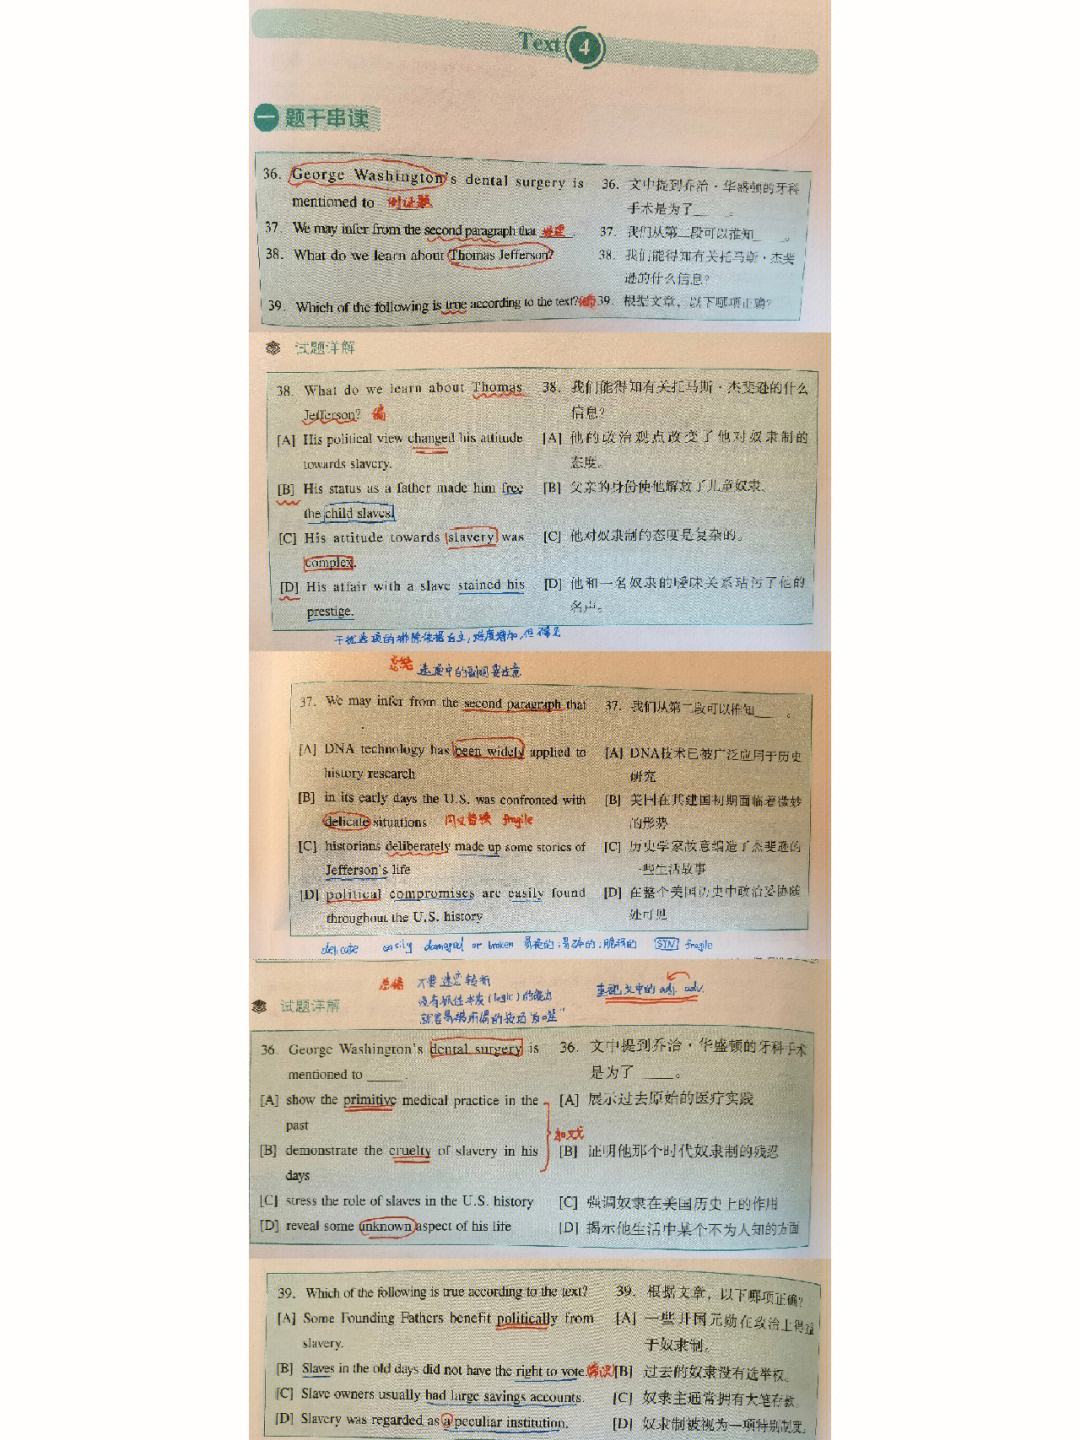 Text 4
一 题干串读
36. George Washington's dental surgery is
mentioned to 例证题
37. We may infer from the second paragraph that 推理
38. What do we learn about Thomas Jefferson?
39. Which of the following is true according to the text? 细
36. 文中提到乔治·华盛顿的牙科
手术是为了____。
37. 我们从第二段可以推知____。
38. 我们能得知有关托马斯·杰斐
逊的什么信息?
39. 根据文章，以下哪项正确?
试题详解
38. What do we learn about Thomas
Jefferson?
[A] His political view changed his attitude
towards slavery.
[B] His status as a father made him free
the child slaves.
[C] His attitude towards slavery was
complex.
[D] His affair with a slave stained his
prestige.
38. 我们能得知有关托马斯·杰斐逊的什么
信息?
[A] 他的政治观点改变了他对奴隶制的
态度。
[B] 父亲的身份使他解放了儿童奴隶。
[C] 他对奴隶制的态度是复杂的。
[D] 他和一名奴隶的暧昧关系玷污了他的
名声。
干扰选项的排除依据
总结 选项中的副词要注意
37. We may infer from the second paragraph that
[A] DNA technology has been widely applied to
history research
[B] in its early days the U.S. was confronted with
delicate situations 同义替换 fragile
[C] historians deliberately made up some stories of
Jefferson's life
[D] political compromises are easily found
throughout the U.S. history
37. 我们从第二段可以推知____。
[A] DNA技术已被广泛应用于历史
研究
[B] 美国在其建国初期面临着微妙
的形势
[C] 历史学家故意编造了杰斐逊的
一些生活故事
[D] 在整个美国历史中政治妥协随
处可见
delicate easily damaged or broken 易损的;易碎的;脆弱的 SYN fragile
总结 不要
没有抓住本质 (logic) 的能力
重视文中的 adj. adv.
试题详解
36. George Washington's dental surgery is
mentioned to ____.
[A] show the primitive medical practice in the
past
[B] demonstrate the cruelty of slavery in his
days
[C] stress the role of slaves in the U.S. history
[D] reveal some unknown aspect of his life
36. 文中提到乔治·华盛顿的牙科手术
是为了____。
[A] 展示过去原始的医疗实践
[B] 证明他那个时代奴隶制的残忍
[C] 强调奴隶在美国历史上的作用
[D] 揭示他生活中某个不为人知的方面
39. Which of the following is true according to the text?
[A] Some Founding Fathers benefit politically from
slavery.
[B] Slaves in the old days did not have the right to vote.
[C] Slave owners usually had large savings accounts.
[D] Slavery was regarded as a peculiar institution.
39. 根据文章，以下哪项正确?
[A] 一些开国元勋在政治上得益
于奴隶制。
[B] 过去的奴隶没有选举权。
[C] 奴隶主通常拥有大笔存款。
[D] 奴隶制被视为一项特别制度。